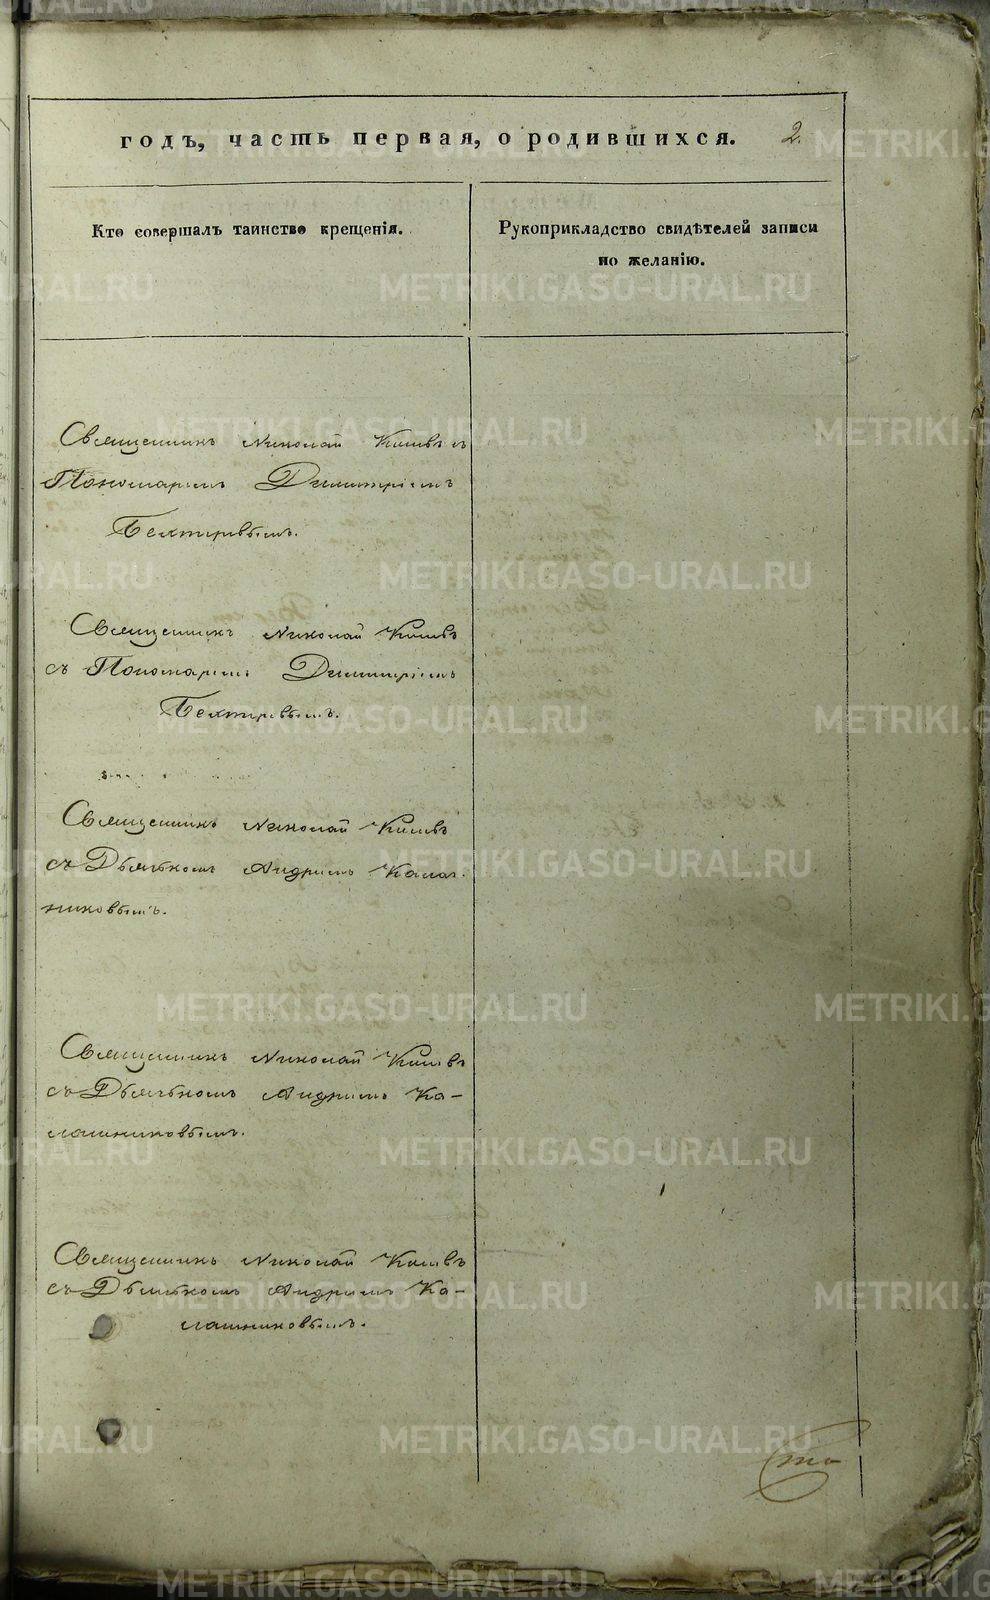 годъ, часть первая, о родившихся. 2.
Кто совершалъ таинство крещенія.
Рукоприкладство свидѣтелей записи
по желанію.
Священникъ Николай съ
Пономаремъ Димитріемъ
Бехтеревымъ.
Священникъ Николай
съ Пономаремъ Димитріемъ
Бехтеревымъ.
Священникъ Николай
съ Дьячкомъ Андреемъ Калаш-
никовымъ.
Священникъ Николай
съ Дьячкомъ Андреемъ Ка-
лашниковымъ.
Священникъ Николай
съ Дьячкомъ Андреемъ Ка-
лашниковымъ.
METRIKI.GASO-URAL.RU